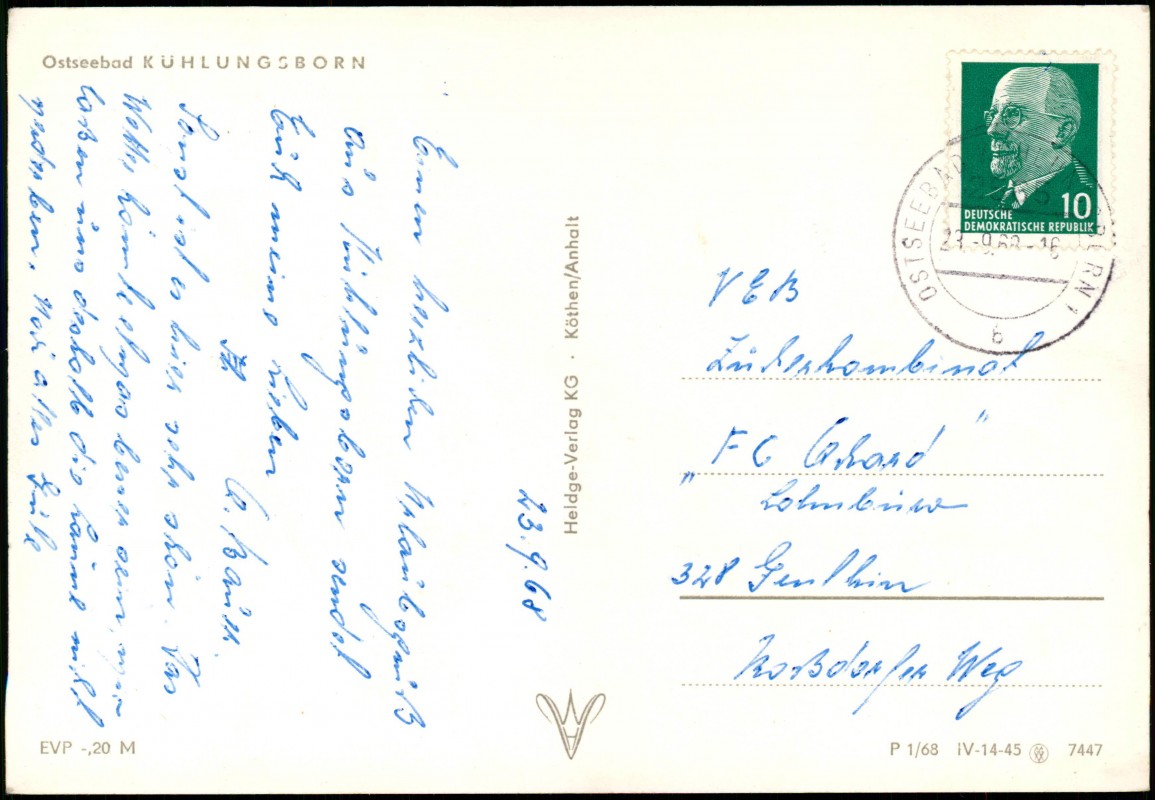 Ostseebad KÜHLUNGSBORN
23.9.68
Einen herzlichen Urlaubsgruß
aus Kühlungsborn sendet
Euch meine Lieben
Ihr
Sonst ist es hier sehr schön. Das
Wetter könnte etwas besser sein, wir
laßen uns deshalb die Laune nicht
verderben. Nun alles Gute
Heldge-Verlag KG · Köthen/Anhalt
EVP -,20 M
10
DEUTSCHE
DEMOKRATISCHE REPUBLIK
OSTSEEBAD BORN 1
23.-9.68-16
b
VEB
Zuckerkombinat
"FC Achard"
Lohnbüro
328 Genthin
Roßdorfer Weg
P 1/68 IV-14-45 7447